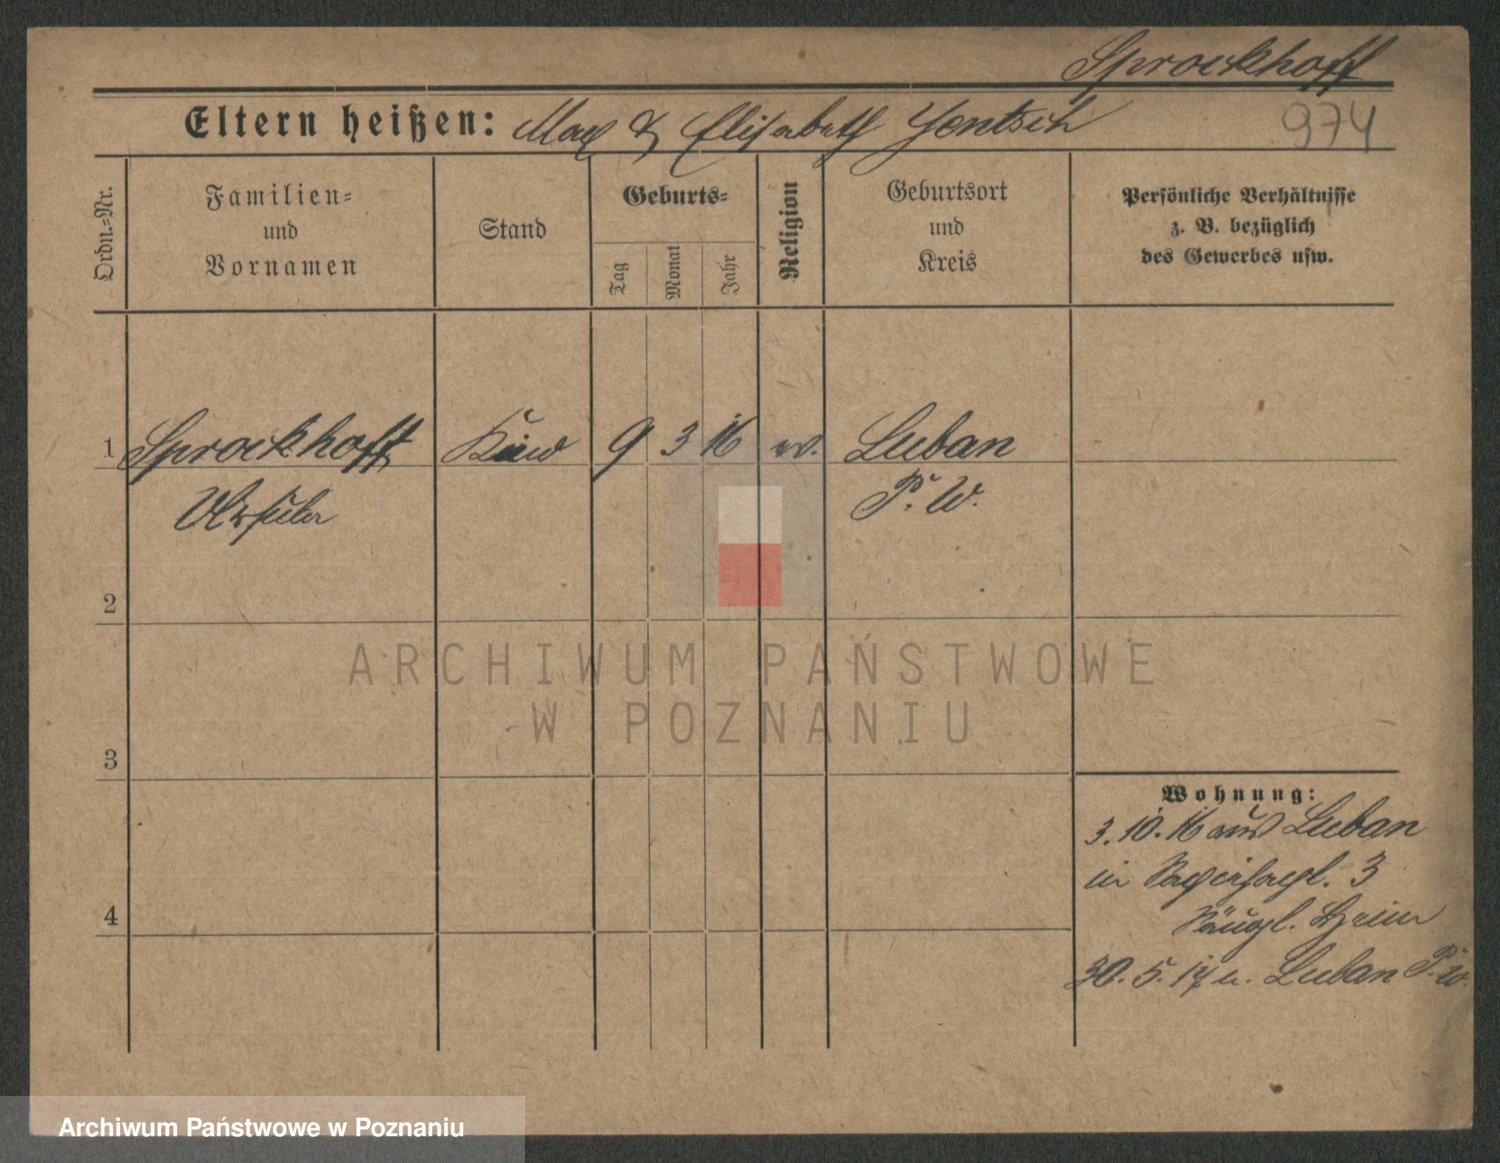 Sprockhoff
Eltern heißen: Max & Elisabeth Jentsch
974
Ordn.-Nr.
Familien-
und
Vornamen
Stand
Geburts-
Tag
Monat
Jahr
Religion
Geburtsort
und
Kreis
Persönliche Verhältnisse
z. B. bezüglich
des Gewerbes usw.
1 Sprockhoff Kind 9 3 16 ev. Luban
P. W.
2
3
4
Wohnung:
3. 10. 16 aus Luban
in 3
Säugl. Heim
30. 5. 17 n. Luban P. W.
ARCHIWUM PAŃSTWOWE
W POZNANIU
Archiwum Państwowe w Poznaniu